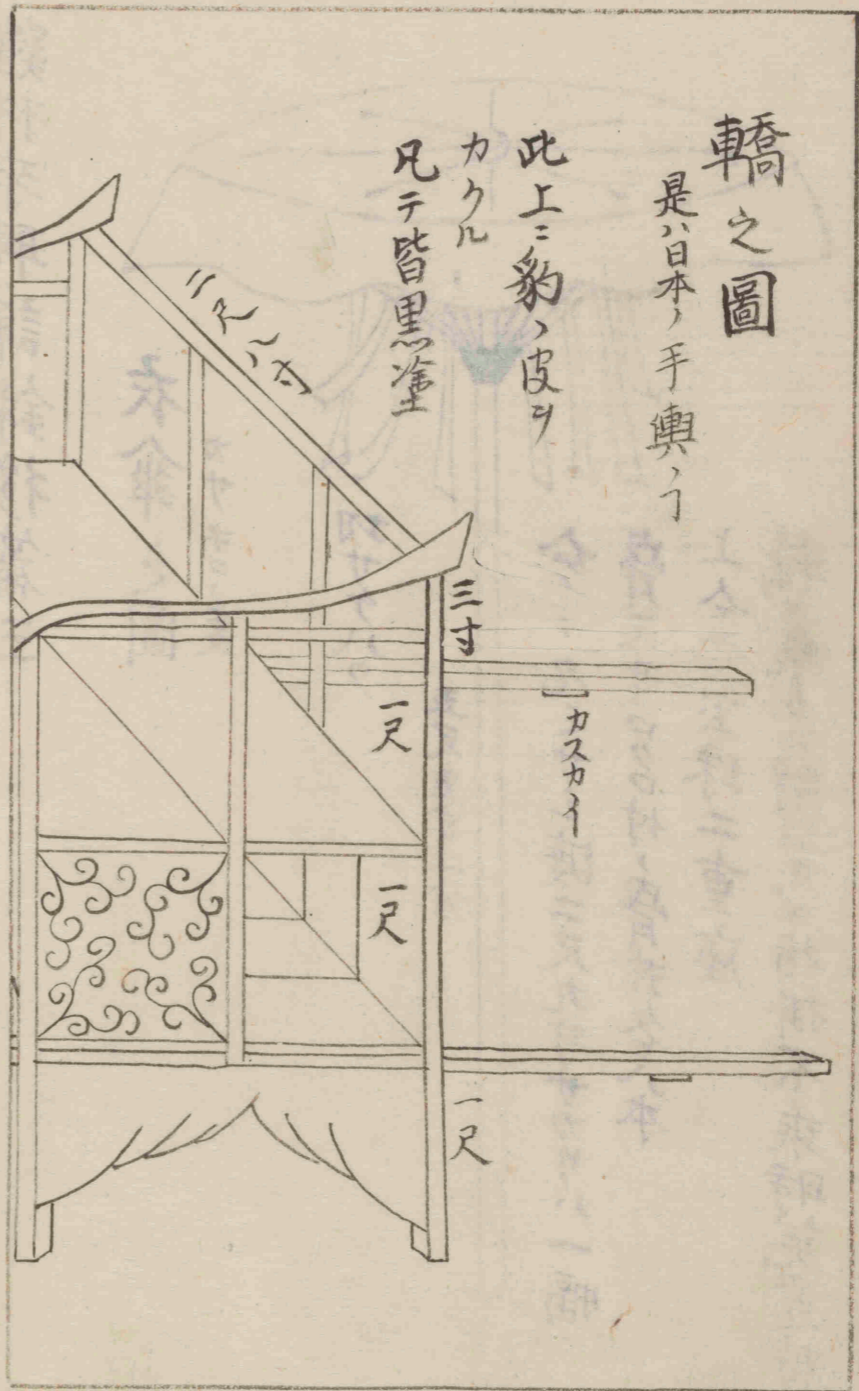 轎之圖
是ハ日本ノ手輿ノヿ
此上ニ豹ノ皮ヲ
カクル
凡テ皆黒塗
二尺八寸
三寸
カスカイ
一尺
一尺
一尺